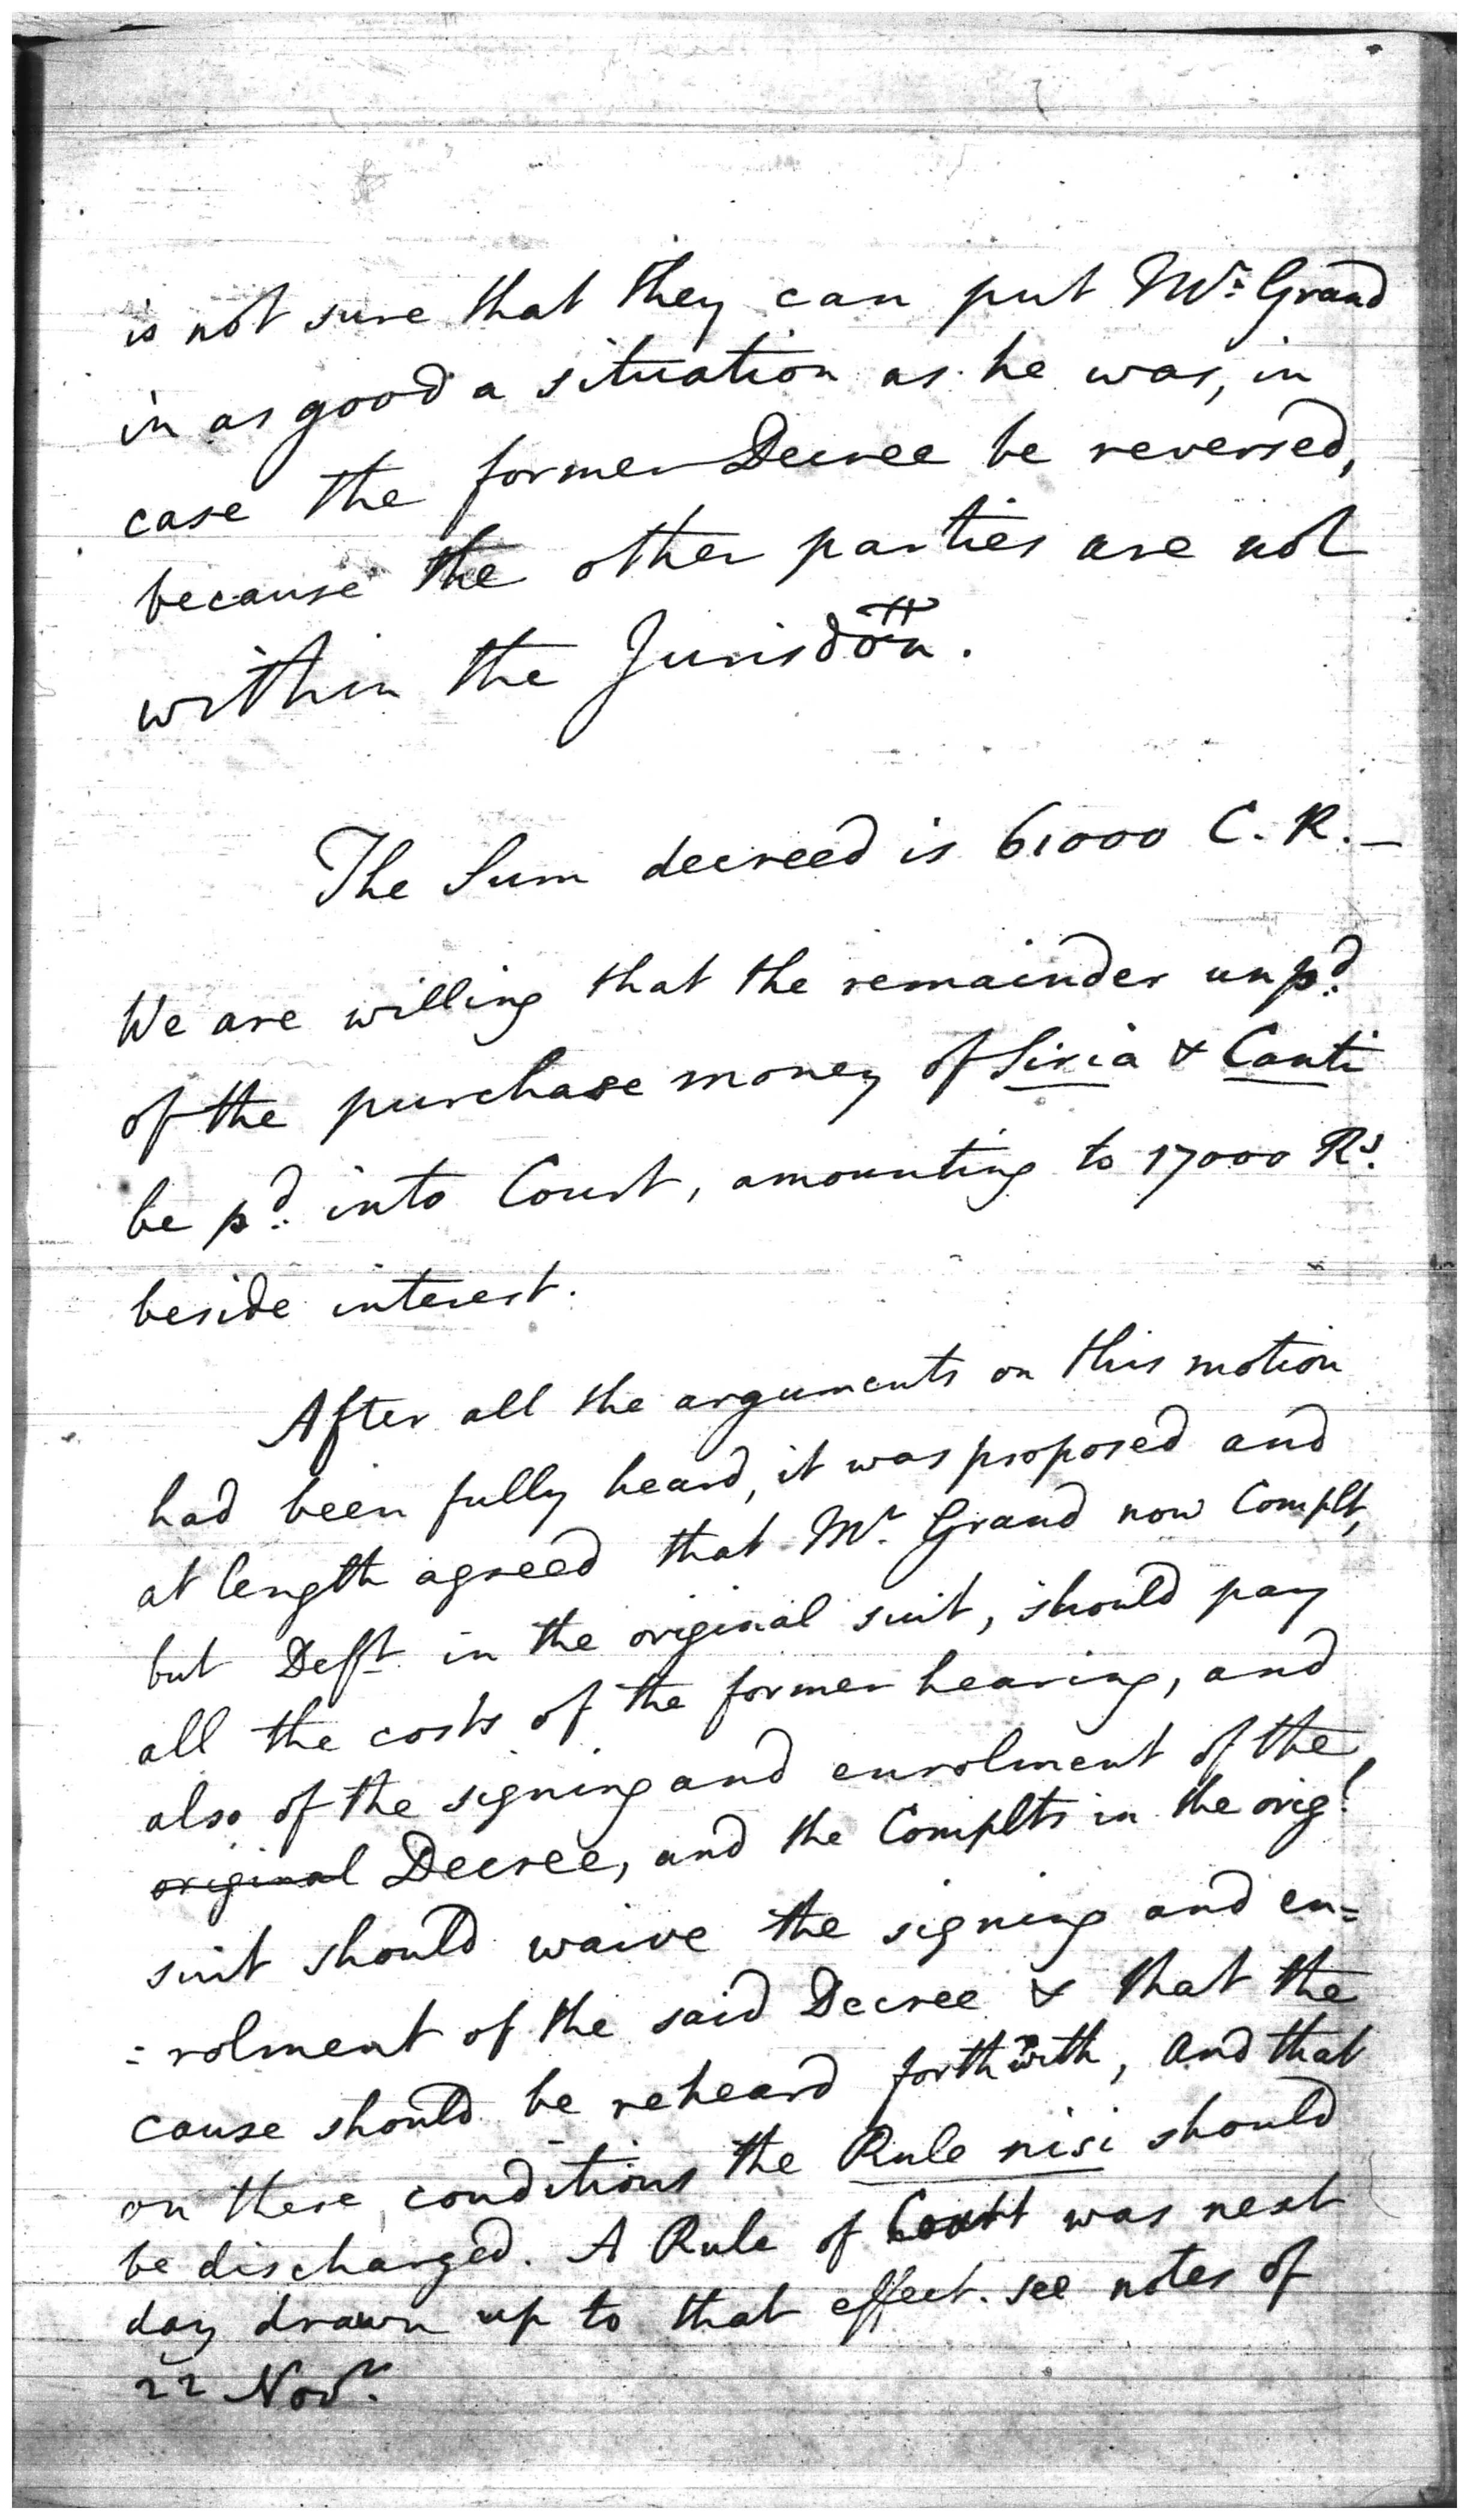 is not sure that they can put Mr. Grand
in as good a situation as he was, in
case the former Decree be reversed,
because the other parties are not
within the Jurisdon.
The Sum decreed is 61000 C. R. —
We are willing that the remainder unpd.
of the purchase money of Siria & Canti
be pd. into Court, amounting to 17000 Rs.
beside interest.
After all the arguments on this motion
had been fully heard, it was proposed and
at length agreed that Mr. Grand now Complt,
but Deft in the original suit, should pay
all the costs of the former hearing, and
also of the signing and enrolment of the
original Decree, and the Complts in the origl.
suit should waive the signing and en=
=rolment of the said Decree & that the
cause should be reheard forthwith, and that
on these conditions the Rule nisi should
be discharged. A Rule of Court was next
day drawn up to that effect. see notes of
22 Novr.